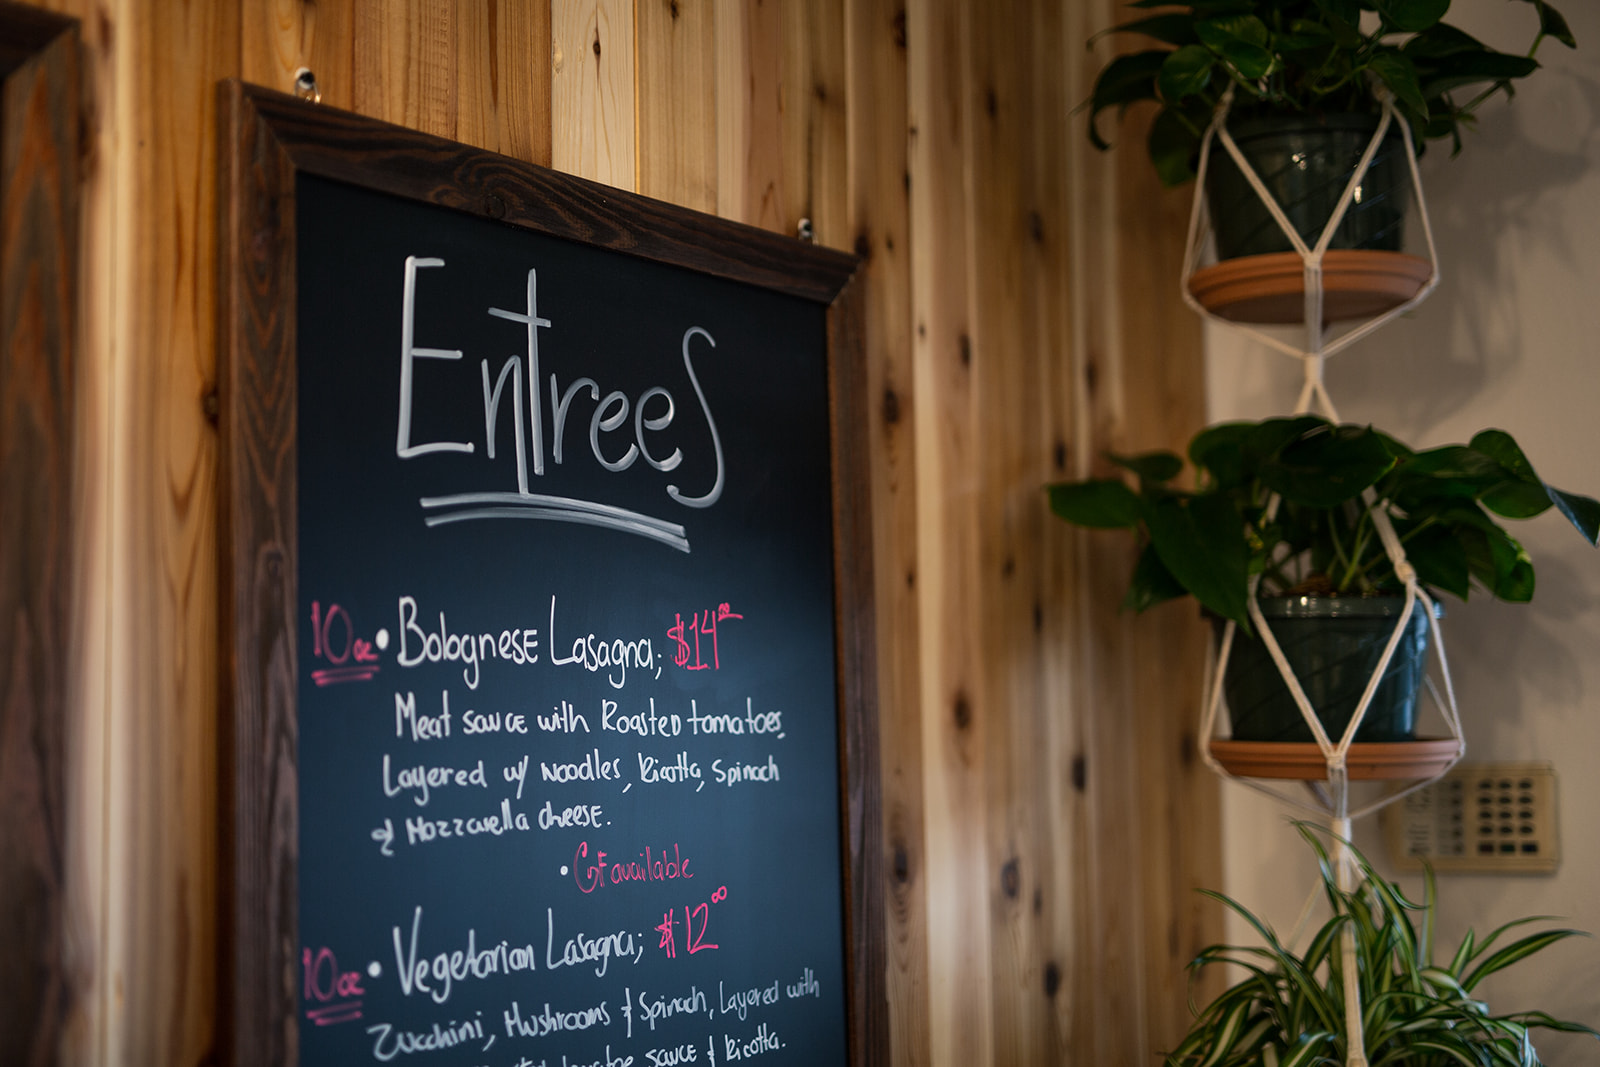 Entrees
10oz • Bolognese Lasagna; $14.00
Meat sauce with Roasted tomatoes,
Layered w/ noodles, Ricotta, Spinach
& Mozzarella cheese.
• GF available
10oz • Vegetarian Lasagna; $12.00
Zucchini, Mushrooms & Spinach, Layered with
sauce & Ricotta.